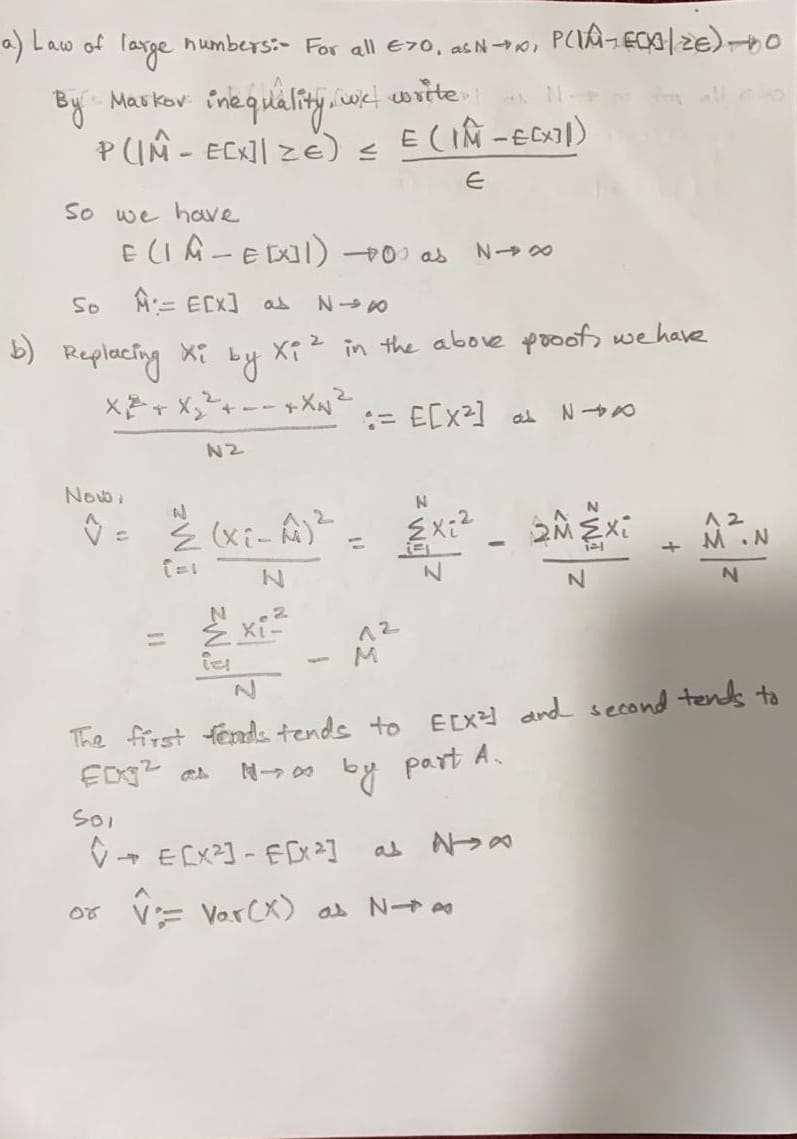 a) Law of large numbers:- For all ϵ>0, as N→∞, P(|M̂-E[X]|≥ϵ)→0
By Markov inequality, we write
P(|M̂ - E[X]| ≥ϵ) ≤ E(|M̂ - E[X]|) / ϵ
So we have
E(|M̂ - E[X]|) →0 as N→∞
So M̂:= E[X] as N→∞
b) Replacing Xi by Xi² in the above proof, we have
X₁² + X₂² + -- + XN² / N2 := E[X²] as N→∞
Now,
V̂ = N Σ i=1 (xi - M̂)² / N = N Σ i=1 Xi² / N - 2M̂ N Σ i=1 Xi / N + M̂² . N / N
= N Σ i=1 xi² / N - M̂²
The first tends to E[X²] and second tends to
E[X]² as N→∞ by part A.
So,
V̂ → E[X²] - E[X²] as N→∞
or V̂:= Var(X) as N→∞